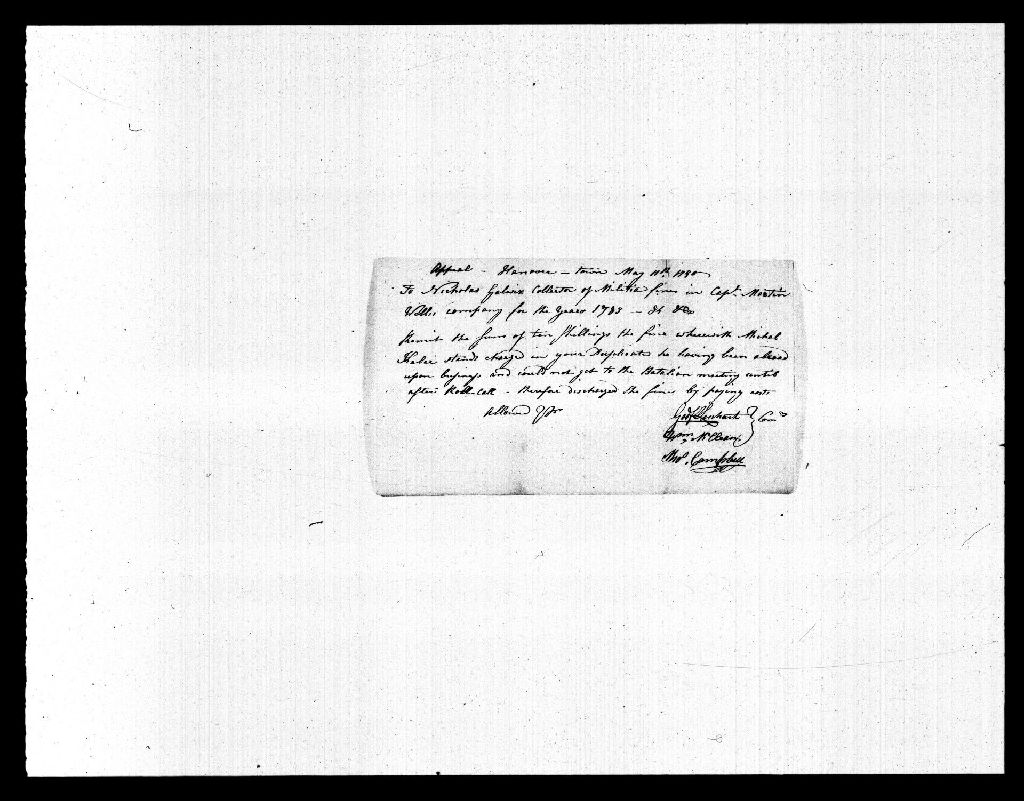 Appeal - Hanover - town May 11th
To Nicholas Collector of Militia fines in Capt.
company for the Years 1785 -
Remit the sum of ten Shillings the fine wherewith Michel
stands charged in your Duplicate he having been abroad
upon business and could not get to the Batalion meeting until
after Roll-Call - therefore discharged the fines by paying costs
Allowed
Wm McClean
Thos. Campbell